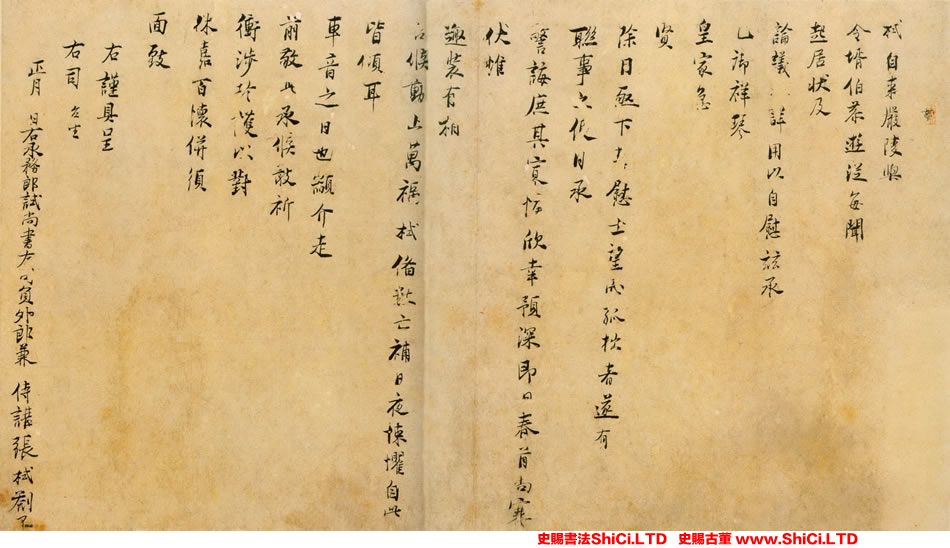 栻自来嚴陵與
令壻伯恭遊從每聞
起居狀及
論議之詳用以自慰茲承
乙祢祥琴
皇家急
賢
除目亟下大慰士望成孤枕者遂有
聯事之便日承
警誨庶其寡悔欣幸預深即日春首尚寒
伏惟
趣裝有相
台候動止萬福栻備數亡補日夜悚懼自此
皆傾耳
車音之日也顓介走
前敬此承候敢祈
衝涉珍護以對
休嘉百懷併須
面致
右謹具呈
右司台坐
正月 日右承務郎試尚書左司員外郎兼侍講張栻劄子
史賜書法ShiCi.LTD 史賜古董 www.ShiCi.LTD